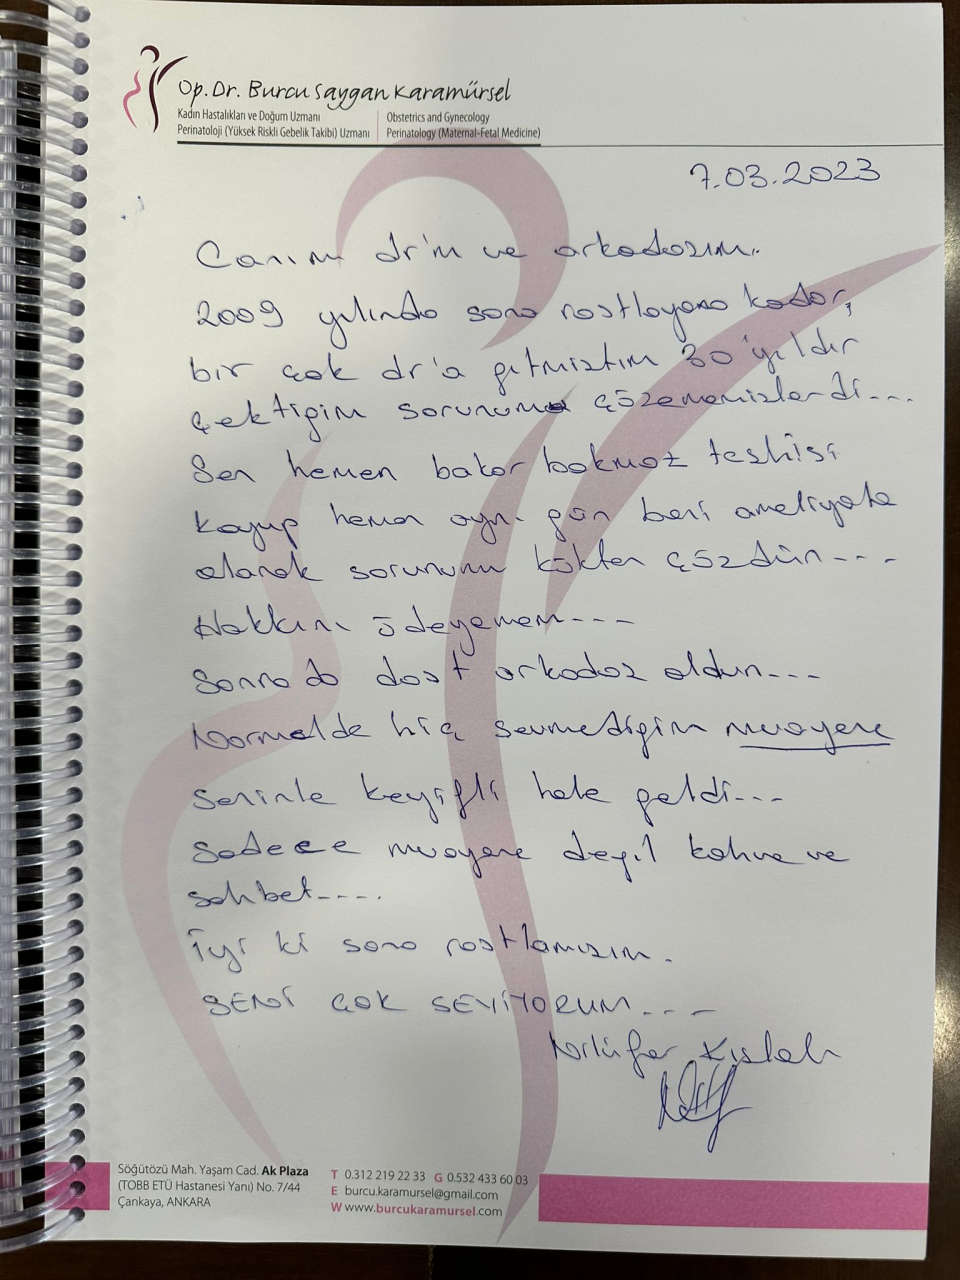 Op. Dr. Burcu Saygan Karamürsel
Kadın Hastalıkları ve Doğum Uzmanı
Perinatoloji (Yüksek Riskli Gebelik Takibi) Uzmanı
Obstetrics and Gynecology
Perinatology (Maternal-Fetal Medicine)
7.03.2023
Canım dr'm ve arkadaşım.
2009 yılında sana rastlayana kadar,
bir çok dr'a gitmiştim 30 yıldır
çektiğim sorunuma çözememişlerdi...
Sen hemen bakar bakmaz teşhisi
koyup hemen aynı gün beni ameliyata
alarak sorunumu kökten çözdün---
Hakkını ödeyemem---
Sonra da dost arkadaş oldun---
Normalde hiç sevmediğim muayene
seninle keyifli hale geldi---
Sadece muayene değil kahve ve
sohbet----.
İyi ki sana rastlamışım.
SENİ ÇOK SEVİYORUM...-
Nilüfer Kışlalı
Söğütözü Mah. Yaşam Cad. Ak Plaza
(TOBB ETÜ Hastanesi Yanı) No. 7/44
Çankaya, ANKARA
T 0.312 219 22 33 G 0.532 433 60 03
E burcu.karamursel@gmail.com
W www.burcukaramursel.com